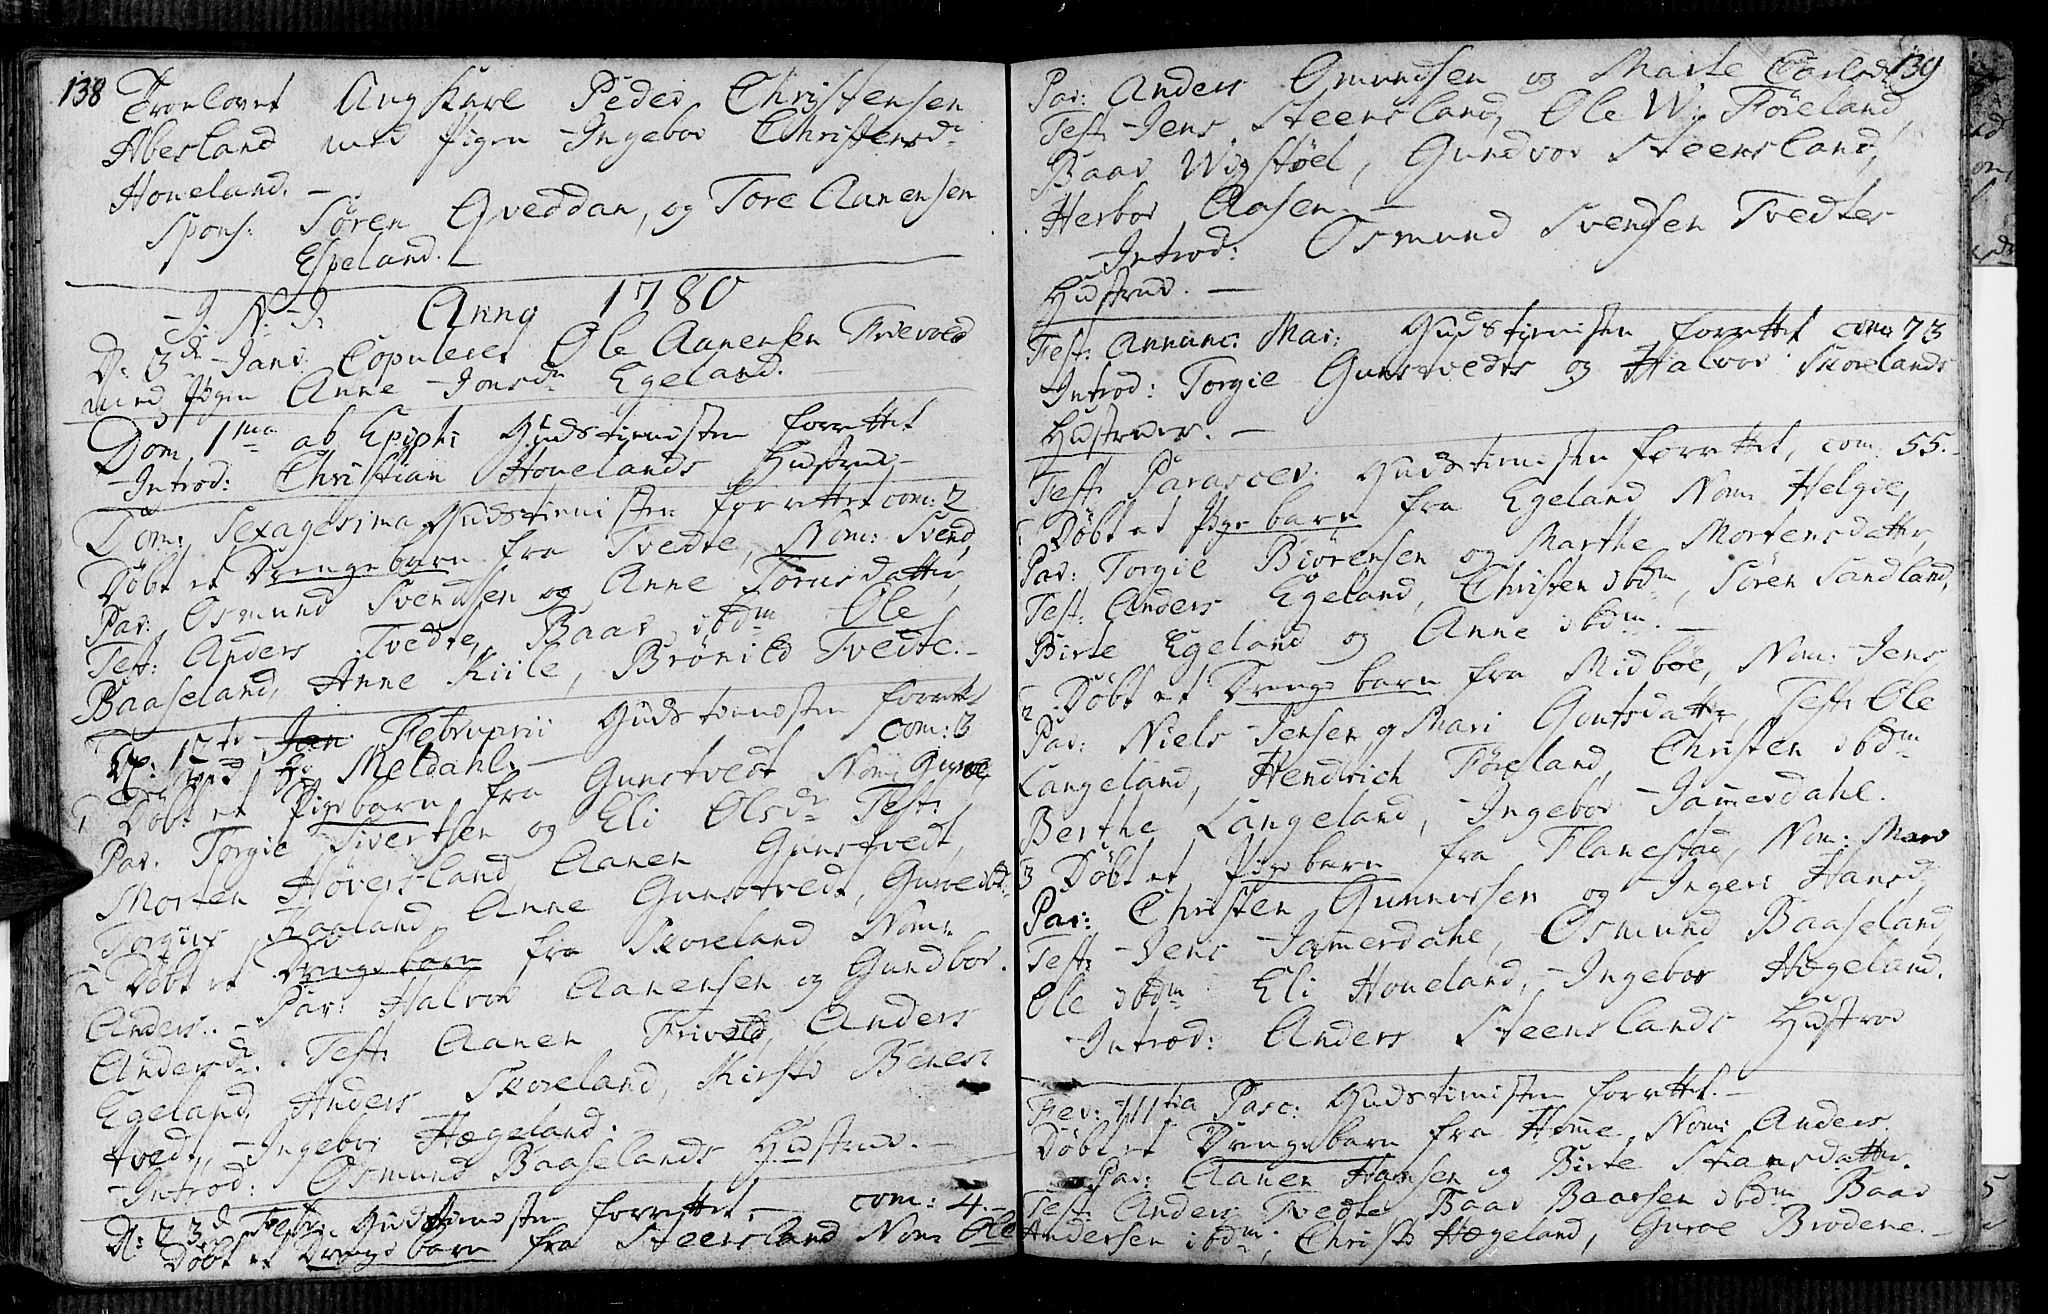 138
Troelovet Ungkarl Peder Christensen
Abesland med Pigen Ingebor Christensdr
Houeland. –
Spons: Søren Qveddan, og Tore Aanensen
Espeland.
J: N: J: Anno 1780
D: 3de Janv. Copuleret Ole Aanensen Trievold
med Pigen Anne Jonsdr Egeland.
Dom. 1ma ab Epiph: Gudstienisten forrettet
Introd: Christian Houelands Hustrue –
Dom: Sexagesima Gudstienisten forrettet com: 2
Døbt et Drengebarn fra Tvedte, Nom: Svend,
Par: Osmund Svendsen og Anne Torusdatter,
Test: Anders Tvedte, Baar ibdm Ole
Baaseland, Anne Kiile, Brønild Tvedte. –
D: 12te Jan: Februarii Gudstienesten forrett
com: 3
Hr Meldahl. –
1 Døbt et Pigebarn fra Gunstvedt Nom: Guroe,
Par. Torgie Sivertsen og Eli Olsdr Test:
Morten Høversland, Aanen Gunstvedt,
Torgius Haaland, Anne Gunstvedt, Guroe ibd:
2 Døbt et Drengebarn fra Skoreland Nom:
Anders. – Par: Halvor Aanensen og Gundbor
Andersdr. Test: Aanen Frivold, Anders
Egeland, Anders Skoreland, Kirste Benes-
tvedt, Ingebor Hægeland.
Introd: Osmund Baaselands Hustrue. –
D: 23d Febr: Gudstienesten forrettet, – com: 4. –
Døbt et Drengebarn fra Steensland Nom: Ole
139
Par: Anders Omundsen og Marte Carlsdr
Test: Jens Steensland, Ole W. Føreland,
Baar Wigstøel, Gundvor Steensland,
Herbor Aasen. –
Introd: Osmund Svensen Tvedtes
Hustrue. –
Fest: Annunc: Mar: Gudstienisten forrettet com 73
Introd: Torgie Gunstvedts og Halvor Skorelands
Hustruer. –
Fest: Parascev: Gudstienisten forrettet, com: 55. –
1 Døbt et Pigebarn fra Egeland Nom: Helgie,
Par: Torgie Biørensen og Marthe Mortensdatter,
Test: Anders Egeland, Christen ibdm, Søren Sandland,
Birte Egeland og Anne ibdm. –
2 Døbt et Drengebarn fra Midbøe, Nom: Jens
Par: Niels Jensen og Mari Guntsdattr, Test: Ole
Langeland, Hendrich Føreland, Christen ibdm
Berthe Langeland, Ingebor Jamerdahl.
3 Døbt et Pigebarn fra Flanestad, Nom: Mari
Par: Christen Gunnersen og Inger Hansdr
Test: Jens Jamerdahl, Osmund Baaseland,
Ole ibdm Eli Houeland, Ingebor Hægeland.
Introd: Anders Steenslands Hustroe
Fer: IIItia Pasc: Gudstienisten forrettet. –
Døbt et Drengebarn fra Homme, Nom: Anders.
Par: Aanen Hansen og Birte Stiansdatter.
Test: Anders Tvedte Baar Baarsen ibdm Baar
Andersen ibdm, Christi Hægeland, Guroe Brodene. –